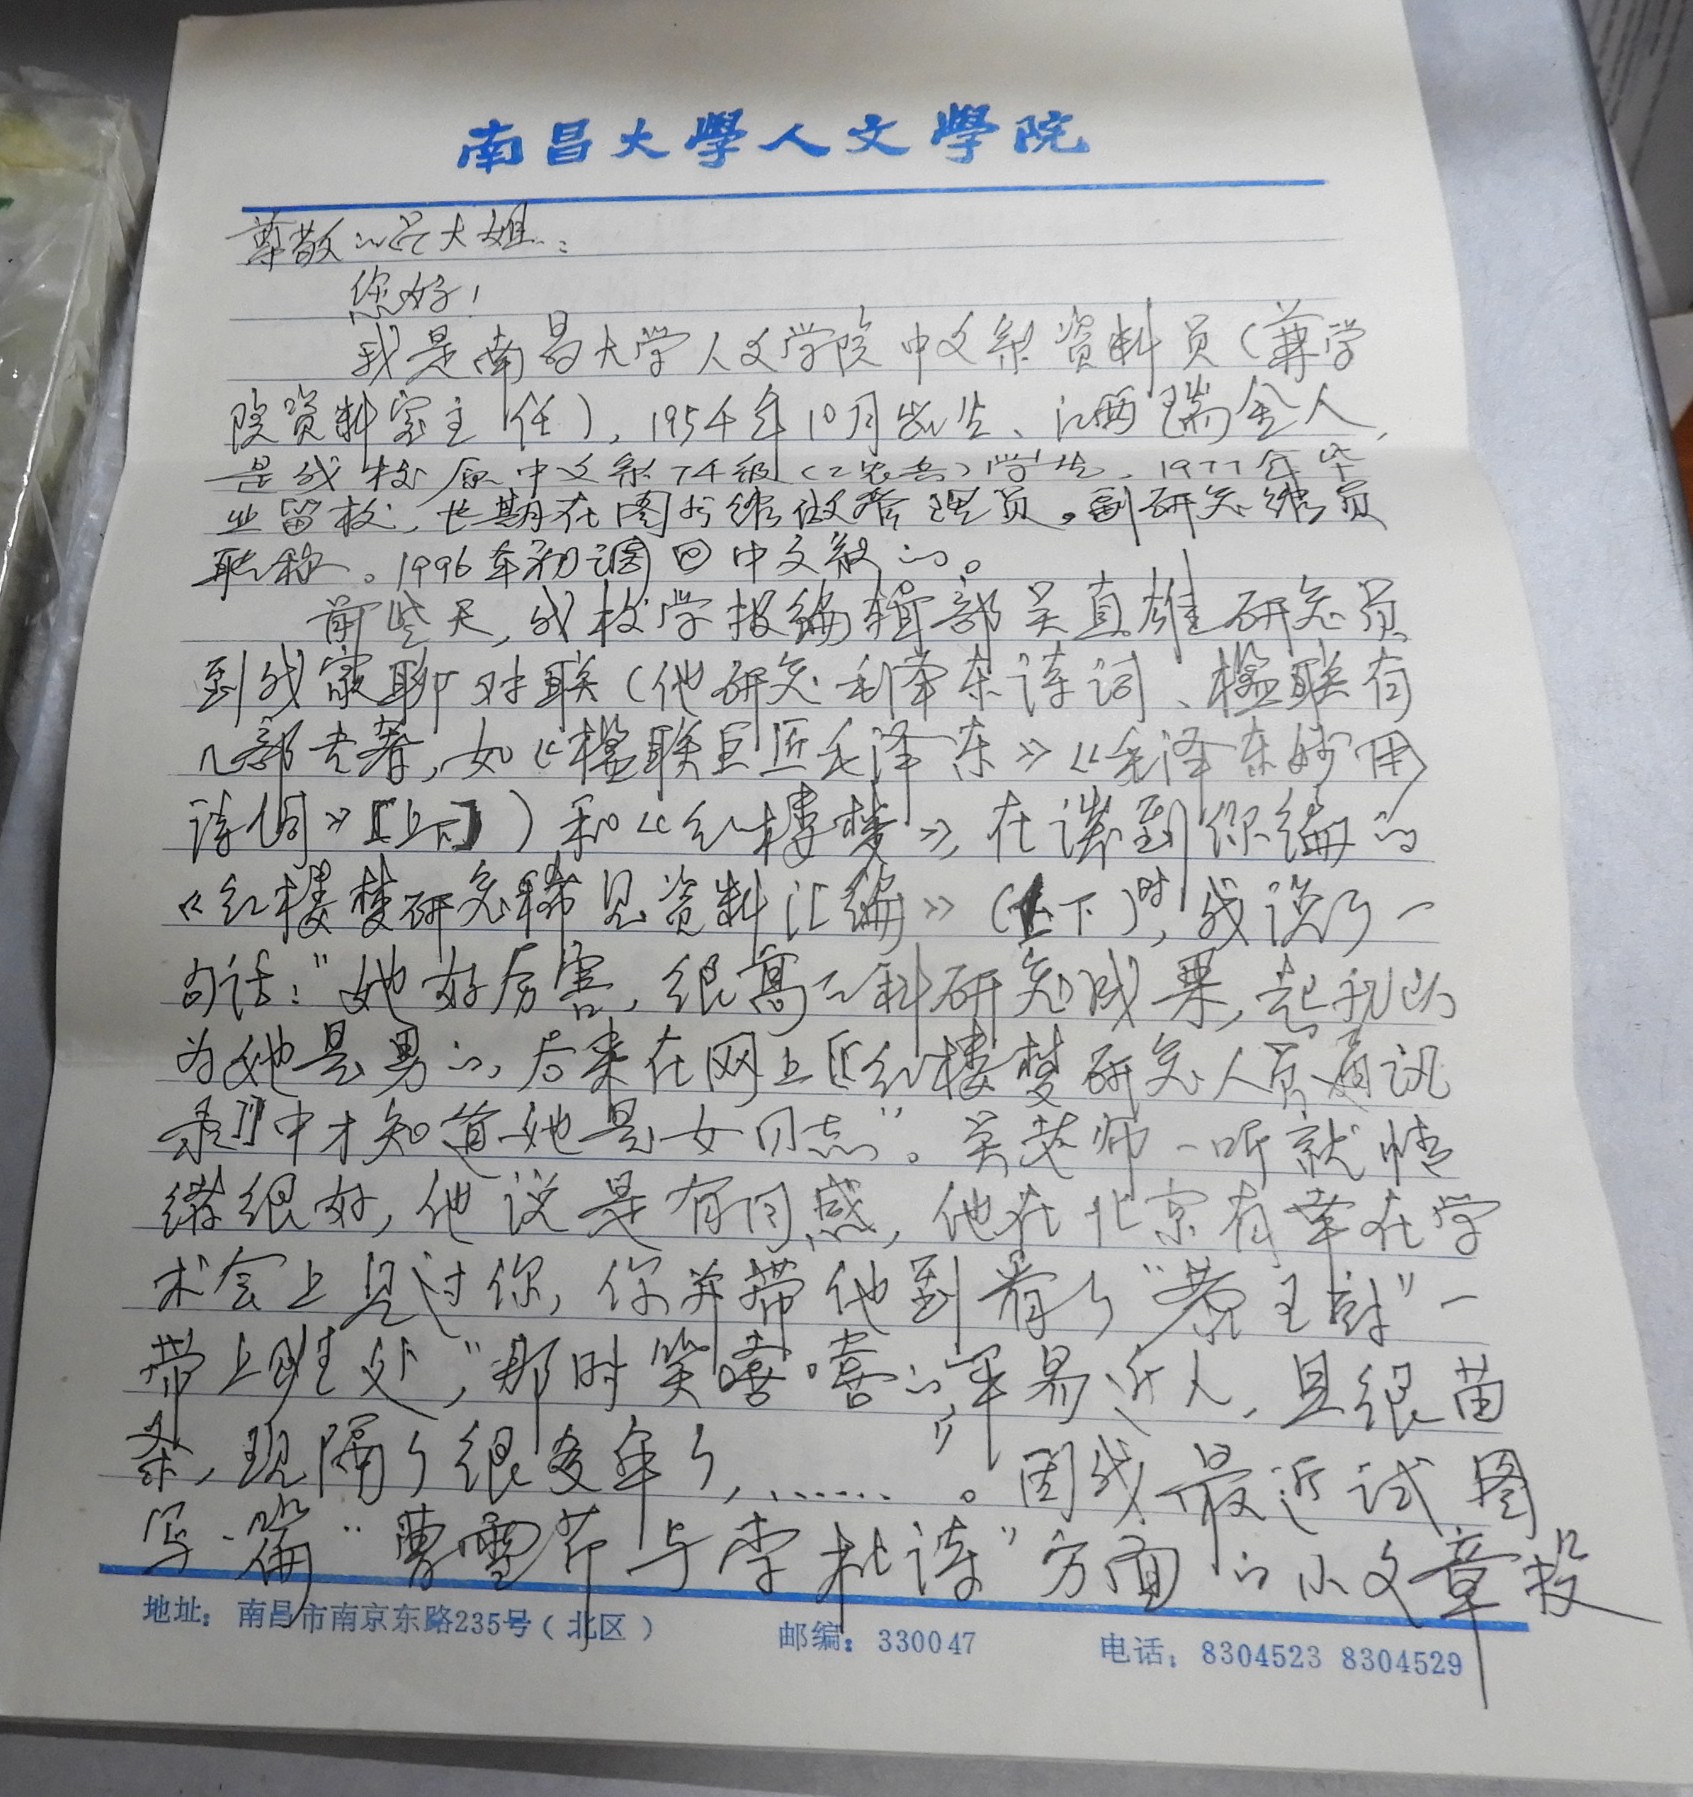 南昌大學人文學院
尊敬的吕大姐：
您好！
我是南昌大学人文学院中文系资料员（兼学
院资料室主任），1954年10月出生、江西瑞金人，
是我校原中文系74级（工农兵）学生，1977年毕
业留校，长期在图书馆做管理员。副研究馆员
职称。1996年初调回中文系的。
前些天，我校学报编辑部吴直雄研究员
到我家聊对联（他研究毛泽东诗词、楹联有
几部专著，如《楹联巨匠毛泽东》《毛泽东妙用
诗词》[上下]）和《红楼梦》，在谈到你编的
《红楼梦研究稀见资料汇编》（上下）时，我说了一
句话：“她好厉害，很高的科研究成果，起初以
为她是男的，后来在网上[《红楼梦研究人员通讯
录》]中才知道她是女同志”。吴老师一听就情
绪很好，他说是有同感，他在北京有幸在学
术会上见过你，你并带他到看了“恭王府”一
带上班处，“那时笑嘻嘻的平易近人，且很苗
条，现隔了很多年了，……”。因我最近试图
写一篇“曹雪芹与李杜诗”方面的小文章投
地址：南昌市南京东路235号（北区） 邮编：330047 电话：8304523 8304529